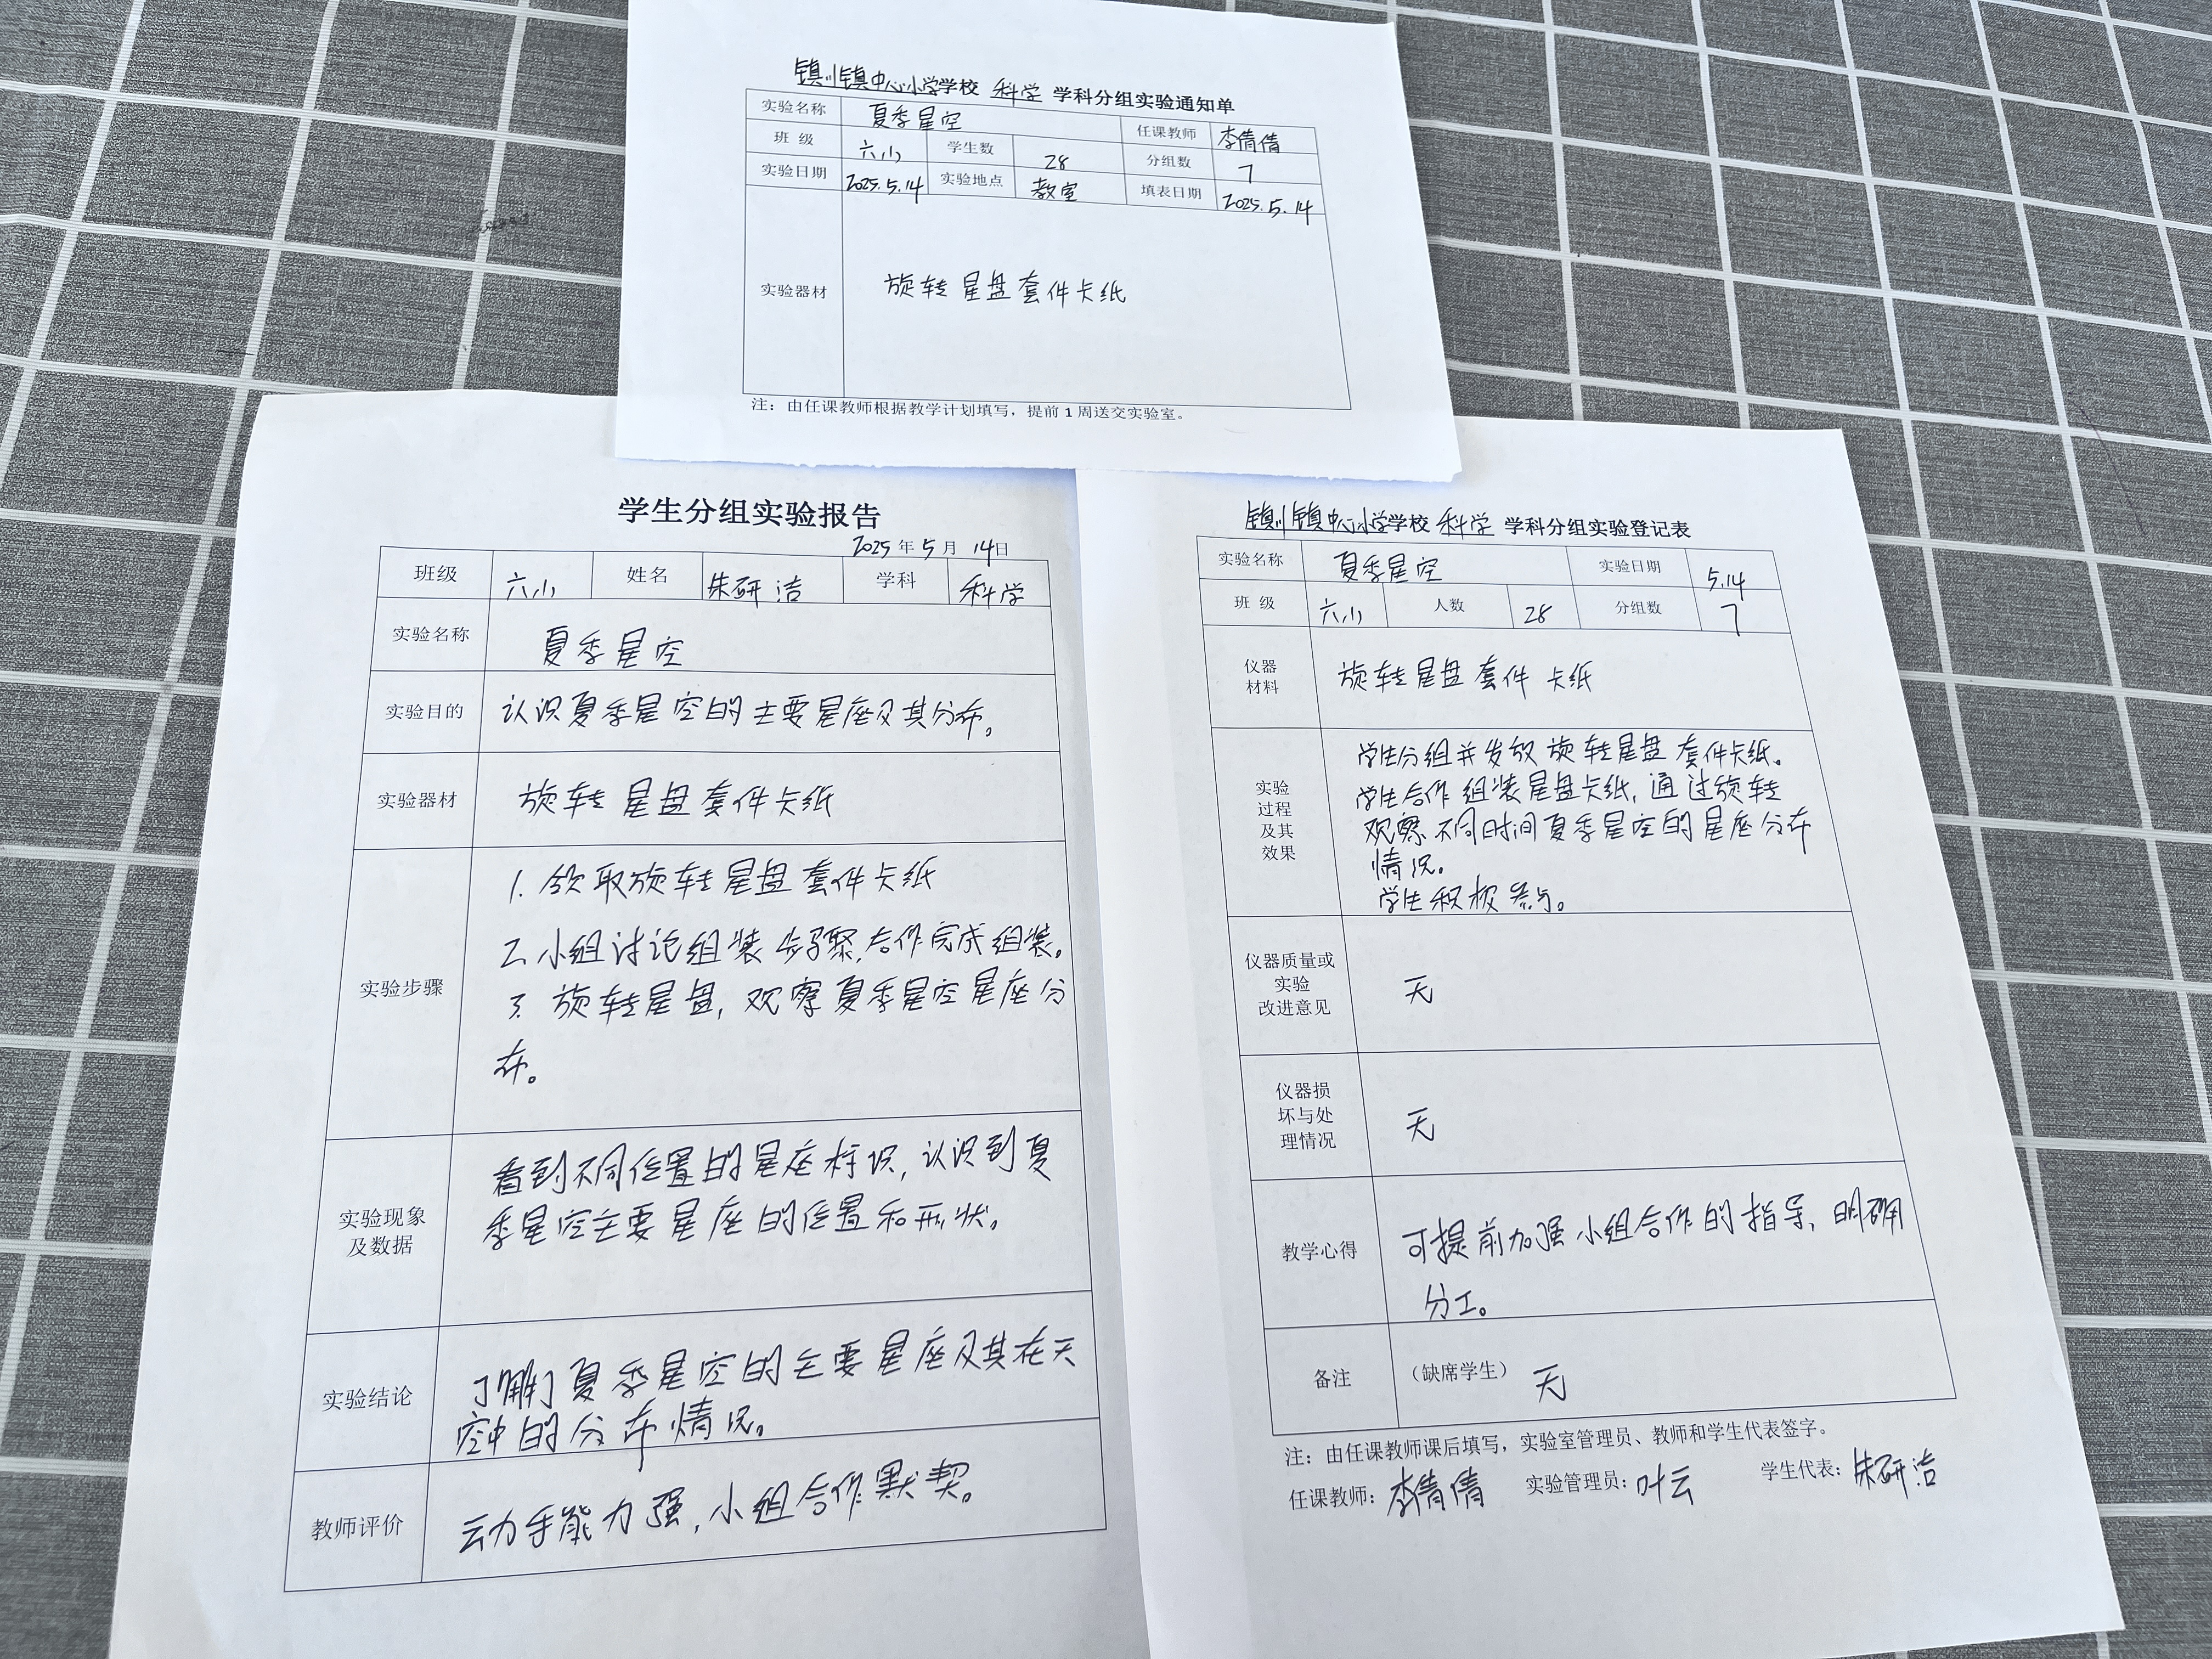 镇川镇中心小学学校 科学 学科分组实验通知单
实验名称 夏季星空 任课教师 李倩倩
班 级 六小 学生数 28 分组数 7
实验日期 2025.5.14 实验地点 教室 填表日期 2025.5.14
实验器材 旋转星盘套件卡纸
注：由任课教师根据教学计划填写，提前 1 周送交实验室。
学生分组实验报告
2025 年 5 月 14 日
班级 六小 姓名 朱研洁 学科 科学
实验名称 夏季星空
实验目的 认识夏季星空的主要星座及其分布。
实验器材 旋转星盘套件卡纸
实验步骤
1. 领取旋转星盘套件卡纸
2. 小组讨论组装步骤,合作完成组装。
3. 旋转星盘, 观察夏季星空星座分
布。
实验现象
及数据
看到不同位置的星座标识, 认识到夏
季星空主要星座的位置和形状。
实验结论
了解了夏季星空的主要星座及其在天
空中的分布情况。
教师评价 动手能力强, 小组合作默契。
镇川镇中心小学学校 科学 学科分组实验登记表
实验名称 夏季星空 实验日期 5.14
班 级 六小 人数 28 分组数 7
仪器
材料
旋转星盘套件 卡纸
实验
过程
及其
效果
学生分组并发放旋转星盘套件卡纸。
学生合作组装星盘卡纸, 通过旋转
观察不同时间夏季星空的星座分布
情况。
学生积极参与。
仪器质量或
实验
改进意见
无
仪器损
坏与处
理情况
无
教学心得
可提前加强小组合作的指导, 明确
分工。
备注 （缺席学生） 无
注：由任课教师课后填写，实验室管理员、教师和学生代表签字。
任课教师：李倩倩 实验管理员：叶云 学生代表：朱研洁